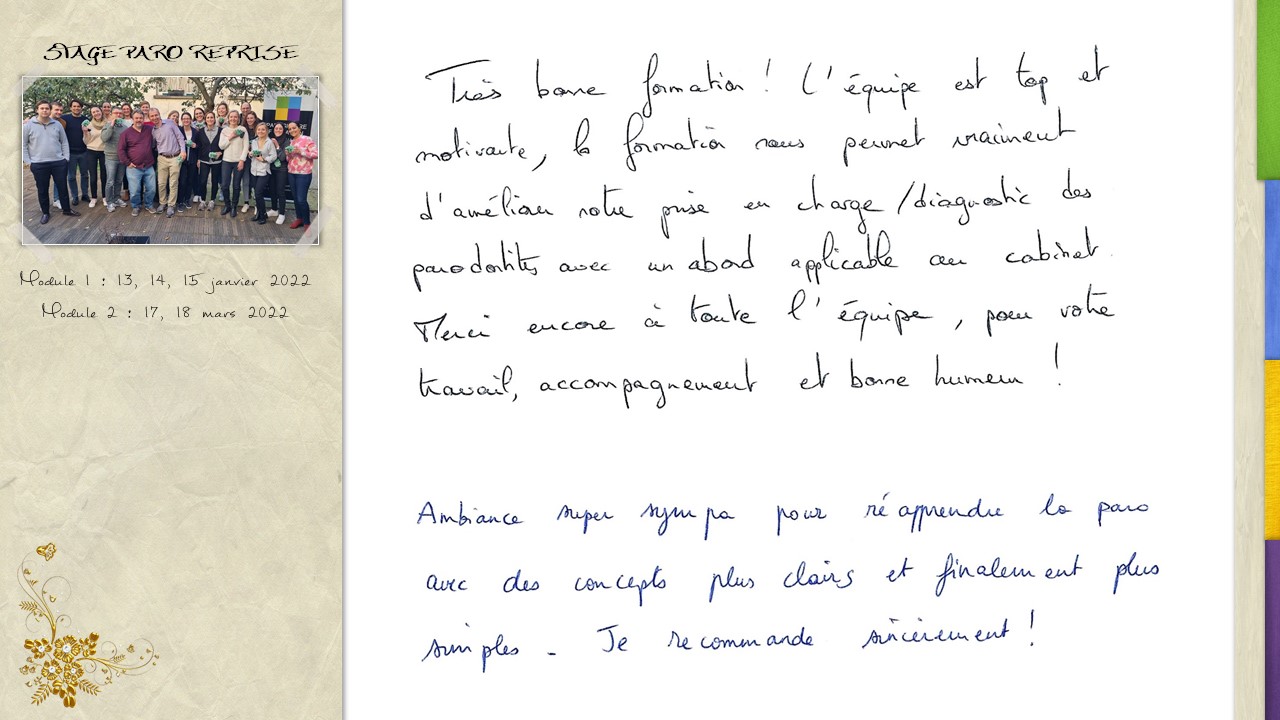 STAGE PARO REPRISE
Module 1 : 13, 14, 15 janvier 2022
Module 2 : 17, 18 mars 2022
Très bonne formation ! L'équipe est top et
motivante, la formation nous permet vraiment
d'améliorer notre prise en charge /diagnostic des
parodontites avec un abord applicable au cabinet.
Merci encore à toute l'équipe, pour votre
travail, accompagnement et bonne humeur !
Ambiance super sympa pour réapprendre la paro
avec des concepts plus clairs et finalement plus
simples - Je recommande sincèrement !